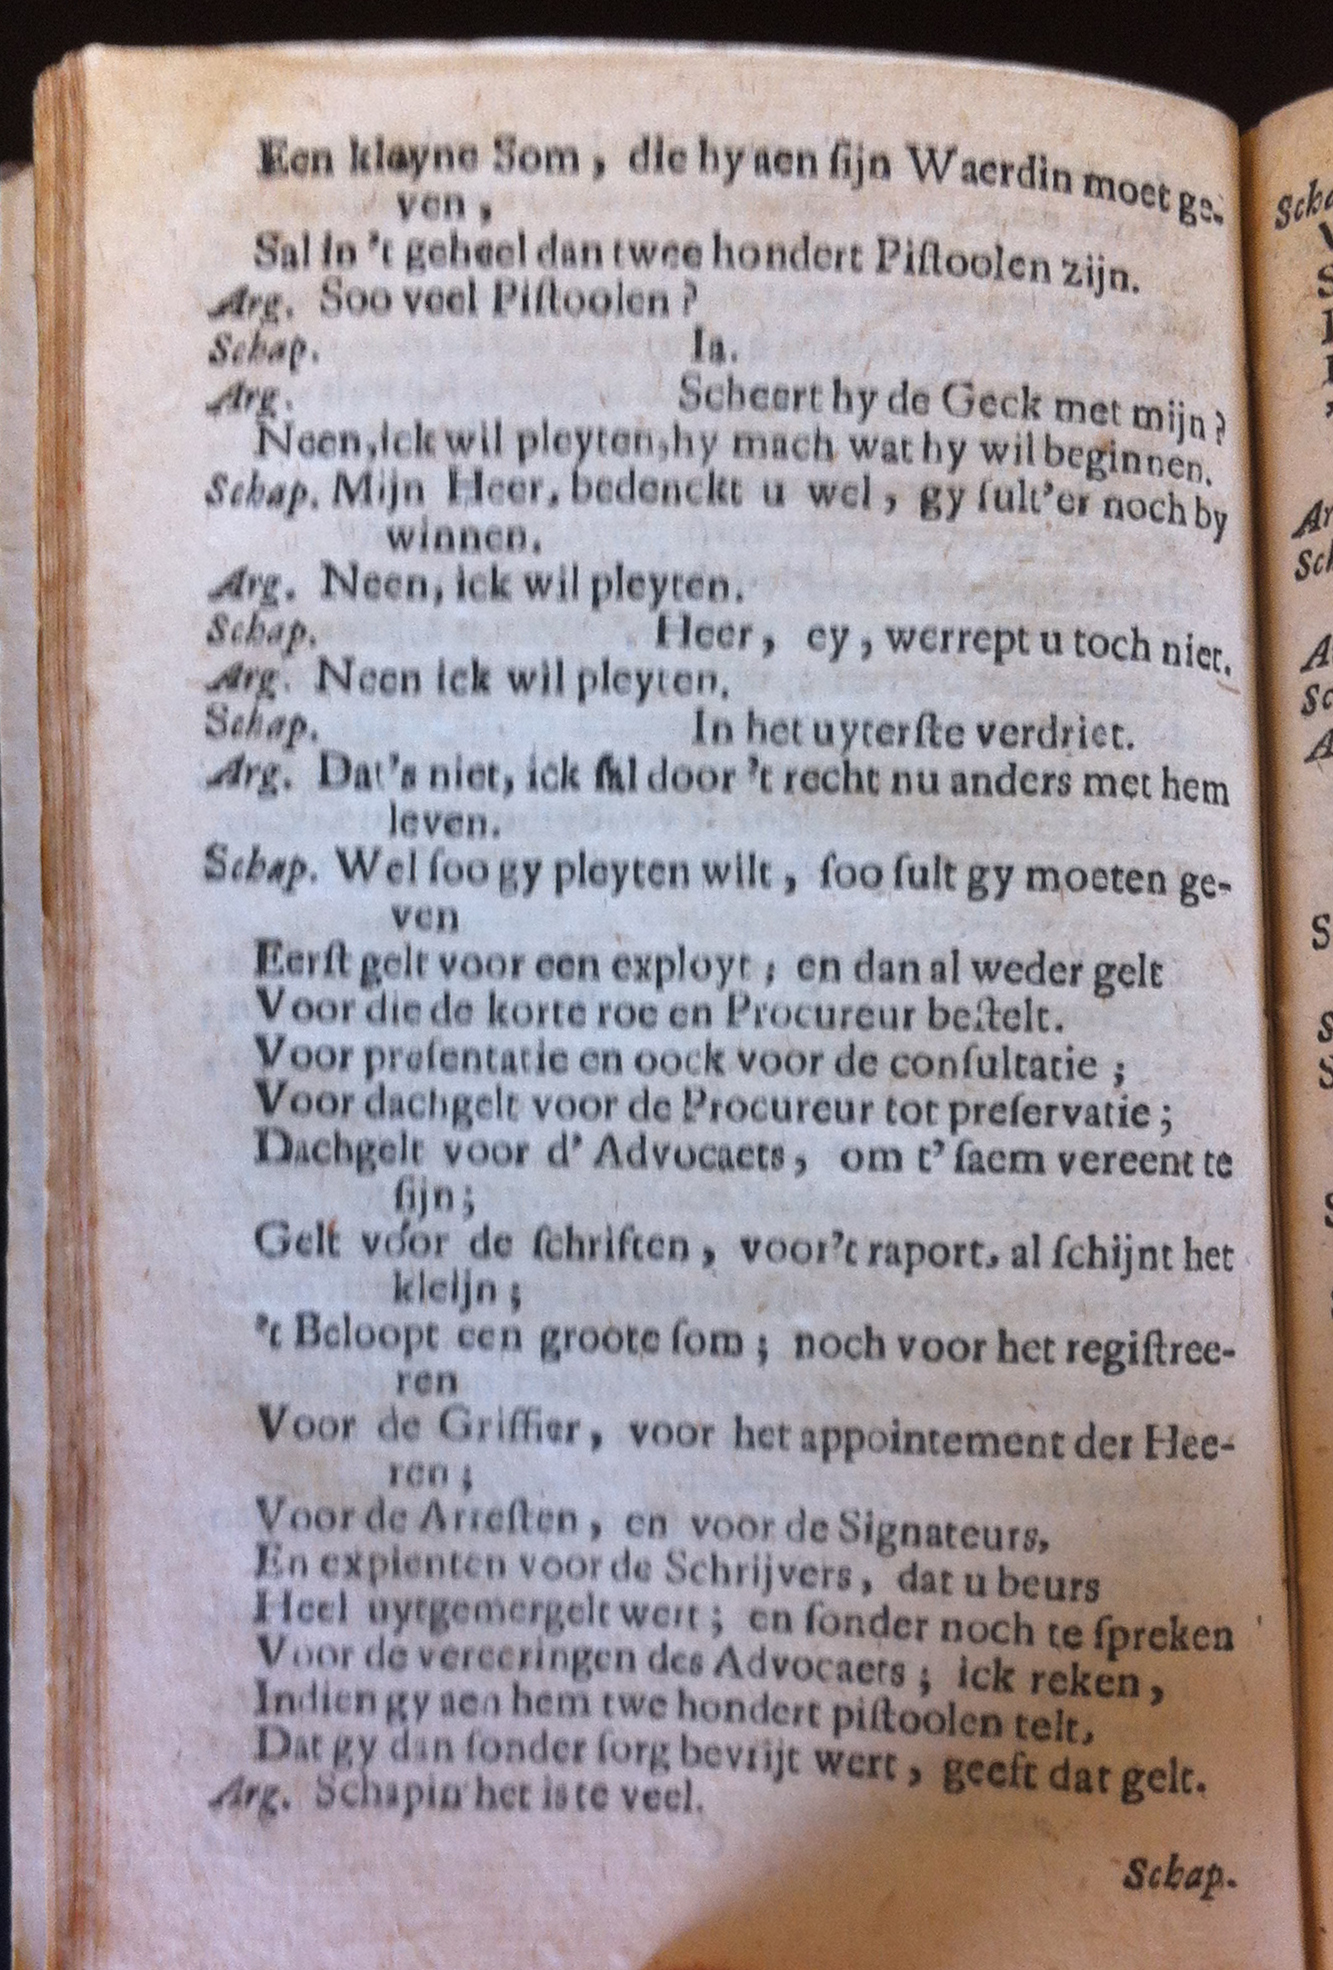 Een klayne Som, die hy aen ſijn Waerdin moet ge-
ven,
Sal in 't geheel dan twee hondert Piſtoolen zijn.
Arg. Soo veel Piſtoolen?
Schap. Ia.
Arg. Scheert hy de Geck met mijn?
Neen, ick wil pleyten, hy mach wat hy wil beginnen.
Schap. Mijn Heer, bedenckt u wel, gy ſult'er noch by
winnen.
Arg. Neen, ick wil pleyten.
Schap. Heer, ey, werrept u toch niet.
Arg. Neen ick wil pleyten.
Schap. In het uyterſte verdriet.
Arg. Dat's niet, ick ſal door 't recht nu anders met hem
leven.
Schap. Wel ſoo gy pleyten wilt, ſoo ſult gy moeten ge-
ven
Eerſt gelt voor een exployt; en dan al weder gelt
Voor die de korte roe en Procureur beſtelt.
Voor preſentatie en oock voor de conſultatie;
Voor dachgelt voor de Procureur tot preſervatie;
Dachgelt voor d' Advocaets, om t' ſaem vereent te
ſijn;
Gelt voor de ſchriften, voor't raport, al ſchijnt het
kleijn;
't Beloopt een groote ſom; noch voor het regiſtree-
ren
Voor de Griffier, voor het appointement der Hee-
ren;
Voor de Arreſten, en voor de Signateurs,
En expienten voor de Schrijvers, dat u beurs
Heel uytgemergelt wert; en ſonder noch te ſpreken
Voor de vereeringen des Advocaets; ick reken,
Indien gy aen hem twe hondert piſtoolen telt,
Dat gy dan ſonder ſorg bevrijt wert, geeft dat gelt.
Arg. Schapin het is te veel.
Schap.